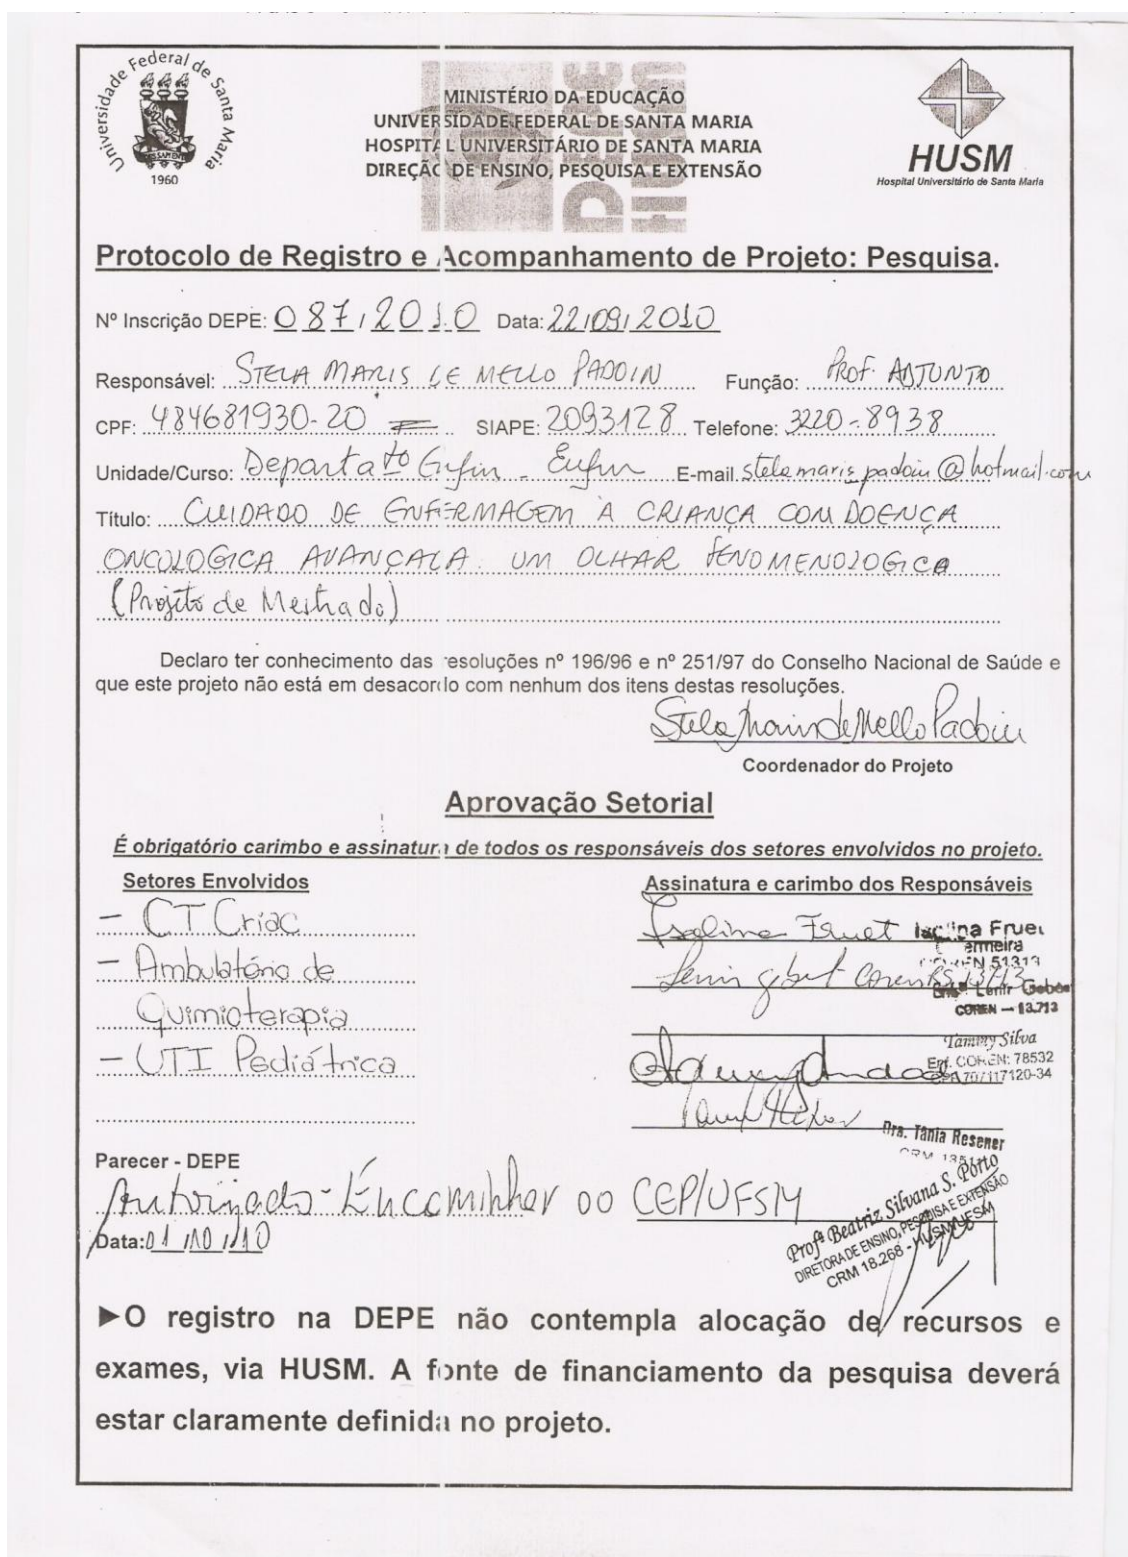 Universidade Federal de Santa Maria
1960
MINISTÉRIO DA EDUCAÇÃO
UNIVERSIDADE FEDERAL DE SANTA MARIA
HOSPITAL UNIVERSITÁRIO DE SANTA MARIA
DIREÇÃO DE ENSINO, PESQUISA E EXTENSÃO
HUSM
Hospital Universitário de Santa Maria
Protocolo de Registro e Acompanhamento de Projeto: Pesquisa.
Nº Inscrição DEPE: 087/2010 Data: 22/09/2010
Responsável: STELA MARIS DE MELLO PADOIN Função: PROF. ADJUNTO
CPF: 484681930-20 SIAPE: 2093128 Telefone: 3220-8938
Unidade/Curso: E-mail. stelamaris_padoin@hotmail.com
Título: CUIDADO DE ENFERMAGEM À CRIANÇA COM DOENÇA
ONCOLOGICA AVANÇADA: UM OLHAR FENOMENOLOGICA
(Projeto de Mestrado)
Declaro ter conhecimento das resoluções nº 196/96 e nº 251/97 do Conselho Nacional de Saúde e
que este projeto não está em desacordo com nenhum dos itens destas resoluções.
Stela Maris de Mello Padoin
Coordenador do Projeto
Aprovação Setorial
É obrigatório carimbo e assinatura de todos os responsáveis dos setores envolvidos no projeto.
Setores Envolvidos Assinatura e carimbo dos Responsáveis
- CT Criac Isolina Fruet
- Ambulatório de
Quimioterapia
COREN – 13.713
Tammy Silva
- UTI Pediátrica Enf. COREN: 78532
Dra. Tânia Resener
Parecer - DEPE
Autorizado - Encaminhar ao CEP/UFSM
Data: 01/10/10
Profª Beatriz Silvana S. Porto
DIRETORA DE ENSINO, PESQUISA E EXTENSÃO
CRM 18.268 - HUSM/UFSM
►O registro na DEPE não contempla alocação de recursos e
exames, via HUSM. A fonte de financiamento da pesquisa deverá
estar claramente definida no projeto.